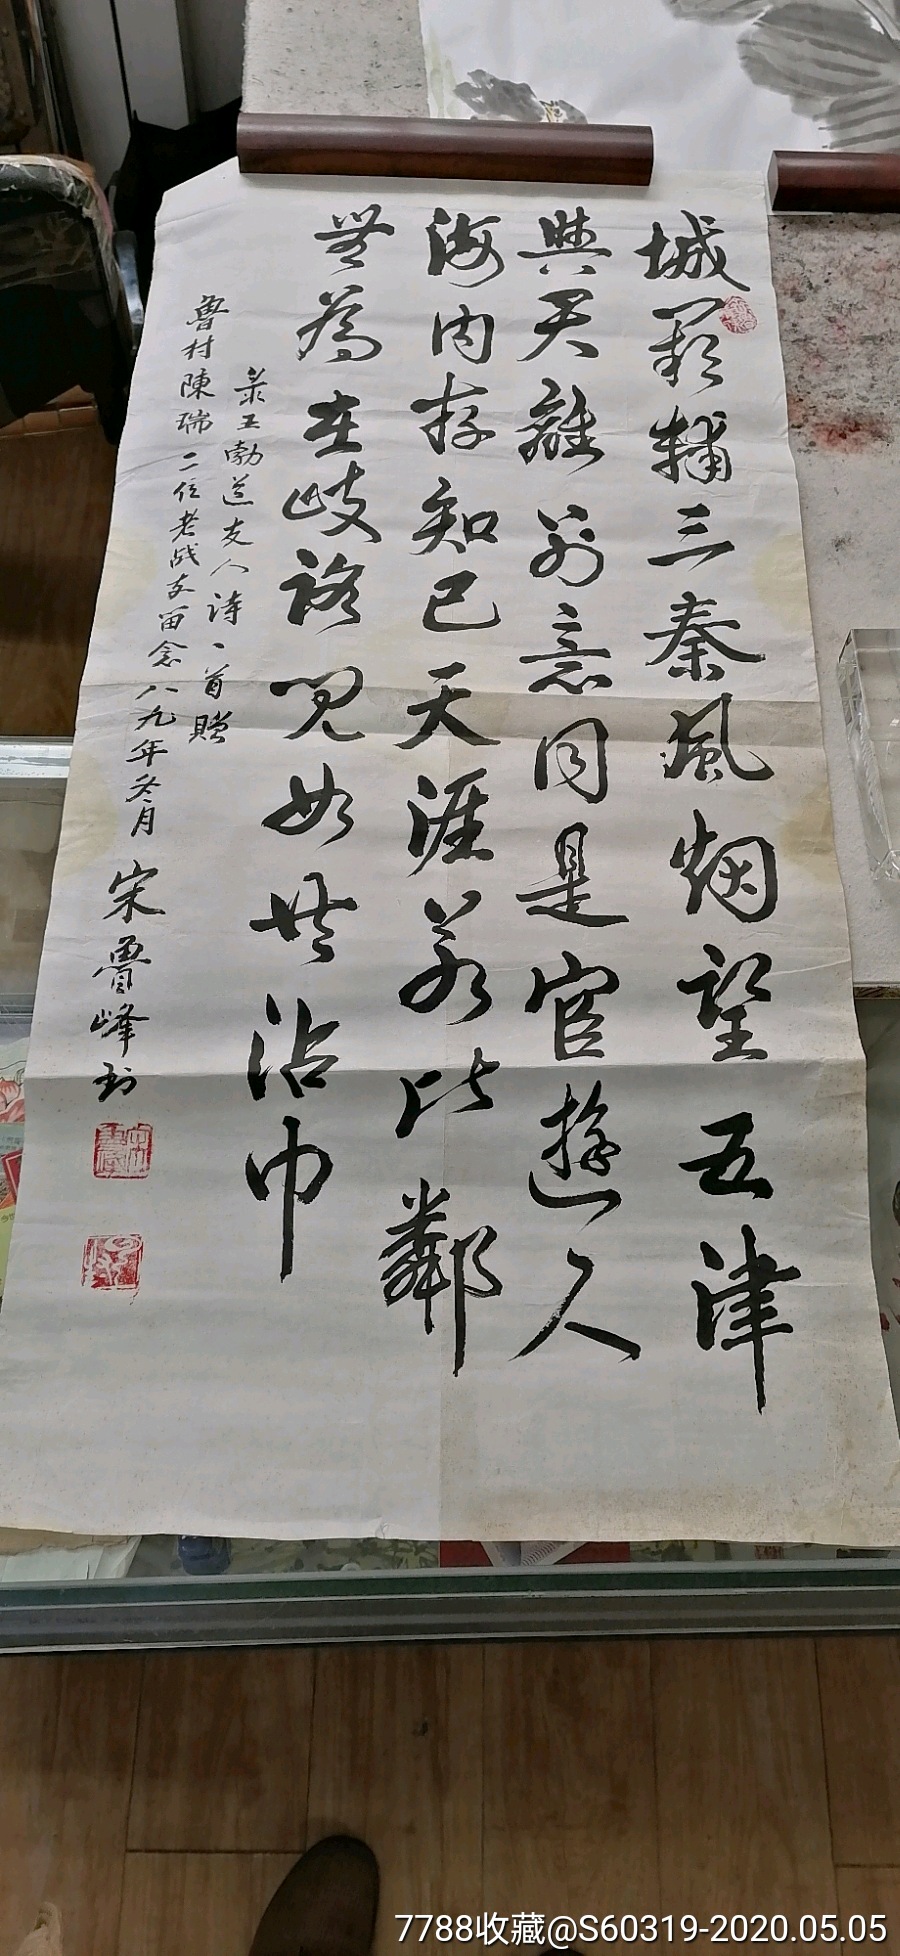 城闕輔三秦風烟望五津
與君離別意同是宦遊人
海内存知己天涯若比鄰
無為在岐路兒女共沾巾
录王勃送友人诗一首赠
魯村陳瑞二位老战友留念八九年冬月 宋魯峰
7788收藏@S60319-2020.05.05